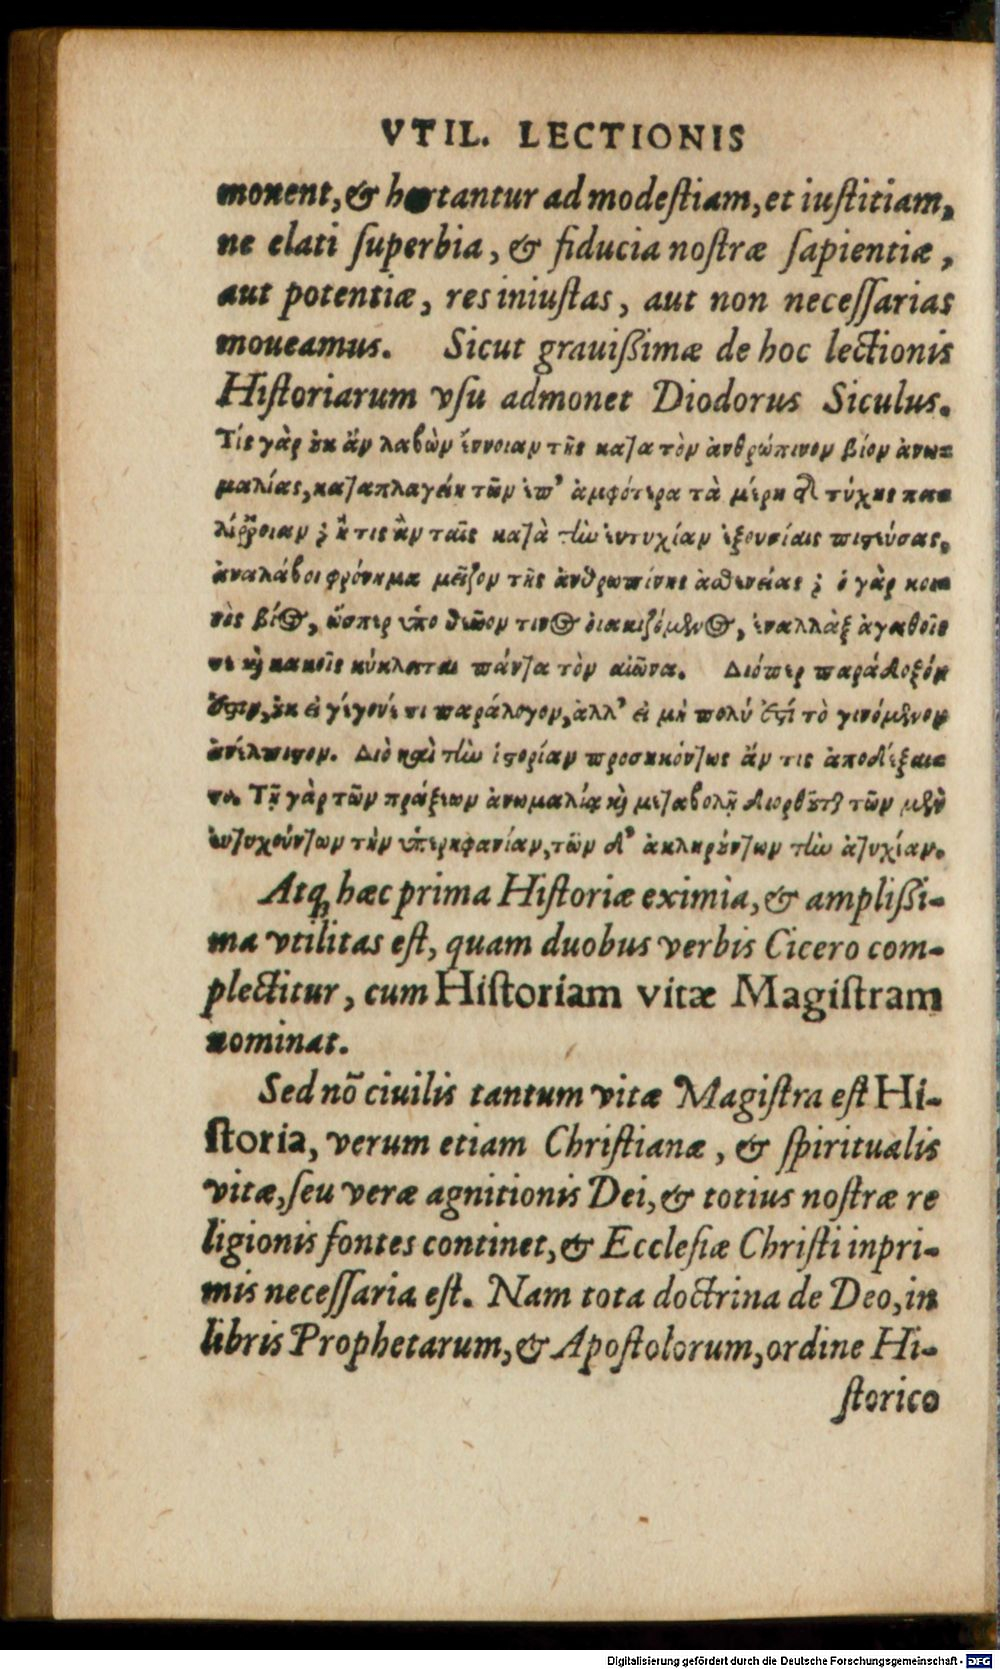 VTIL. LECTIONIS
monent, & hortantur ad modeſtiam, et iuſtitiam,
ne elati ſuperbia, & fiducia noſtræ ſapientiæ,
aut potentiæ, res iniuſtas, aut non neceſſarias
moueamus. Sicut grauißimæ de hoc lectionis
Hiſtoriarum vſu admonet Diodorus Siculus.
Τίς γὰρ ἐκ ἂν λαβὼν ἔννοιαν τῆς κατὰ τὸν ἀνθρώπινον βίον ἀνω-
μαλίας, καταπλαγείη τῶν ἐπ' ἀμφότερα τὰ μέρη τ τύχης πα-
λίρροιαν; ἢ τις ἂν ταῖς κατὰ τὴν ἐντυχίαν ἐξουσίαις πιστεύσας,
ἀναλάβοι φρόνημα μεῖζον τῆς ἀνθρωπίνης ἀσθενείας; ὁ γὰρ κοι-
νὸς βίος, ὥσπερ ὑπὸ θεῶν τινος οἰακιζόμενος, ἐναλλὰξ ἀγαθοῖς
τε καὶ κακοῖς κύκλεται πάντα τὸν αἰῶνα. Διόπερ παράδοξόν
ἐστιν, ἐκ εἰ γέγονέ τι παράλογον, ἀλλ' εἰ μὴ πολύ ἐστί τὸ γινόμενον
ἀνέλπιστον. Διὸ καὶ τὴν ἱστορίαν προσηκόντως ἄν τις ἀποδέξαι-
το. Τῇ γὰρ τῶν πράξεων ἀνωμαλίᾳ καὶ μεταβολῇ διορθοῦται τῶν μὲν
εὐτυχούντων τὴν ὑπερηφανίαν, τῶν δ' ἀκληρούντων τὴν ἀτυχίαν.
Atq; hæc prima Hiſtoriæ eximia, & amplißi-
ma vtilitas eſt, quam duobus verbis Cicero com-
plectitur, cum Hiſtoriam vitæ Magiſtram
nominat.
Sed nõ ciuilis tantum vitæ Magiſtra eſt Hi-
ſtoria, verum etiam Chriſtianæ, & ſpiritualis
vitæ, ſeu veræ agnitionis Dei, & totius noſtræ re
ligionis fontes continet, & Eccleſiæ Chriſti inpri-
mis neceſſaria eſt. Nam tota doctrina de Deo, in
libris Prophetarum, & Apoſtolorum, ordine Hi-
ſtorico
Digitalisierung gefördert durch die Deutsche Forschungsgemeinschaft - DFG